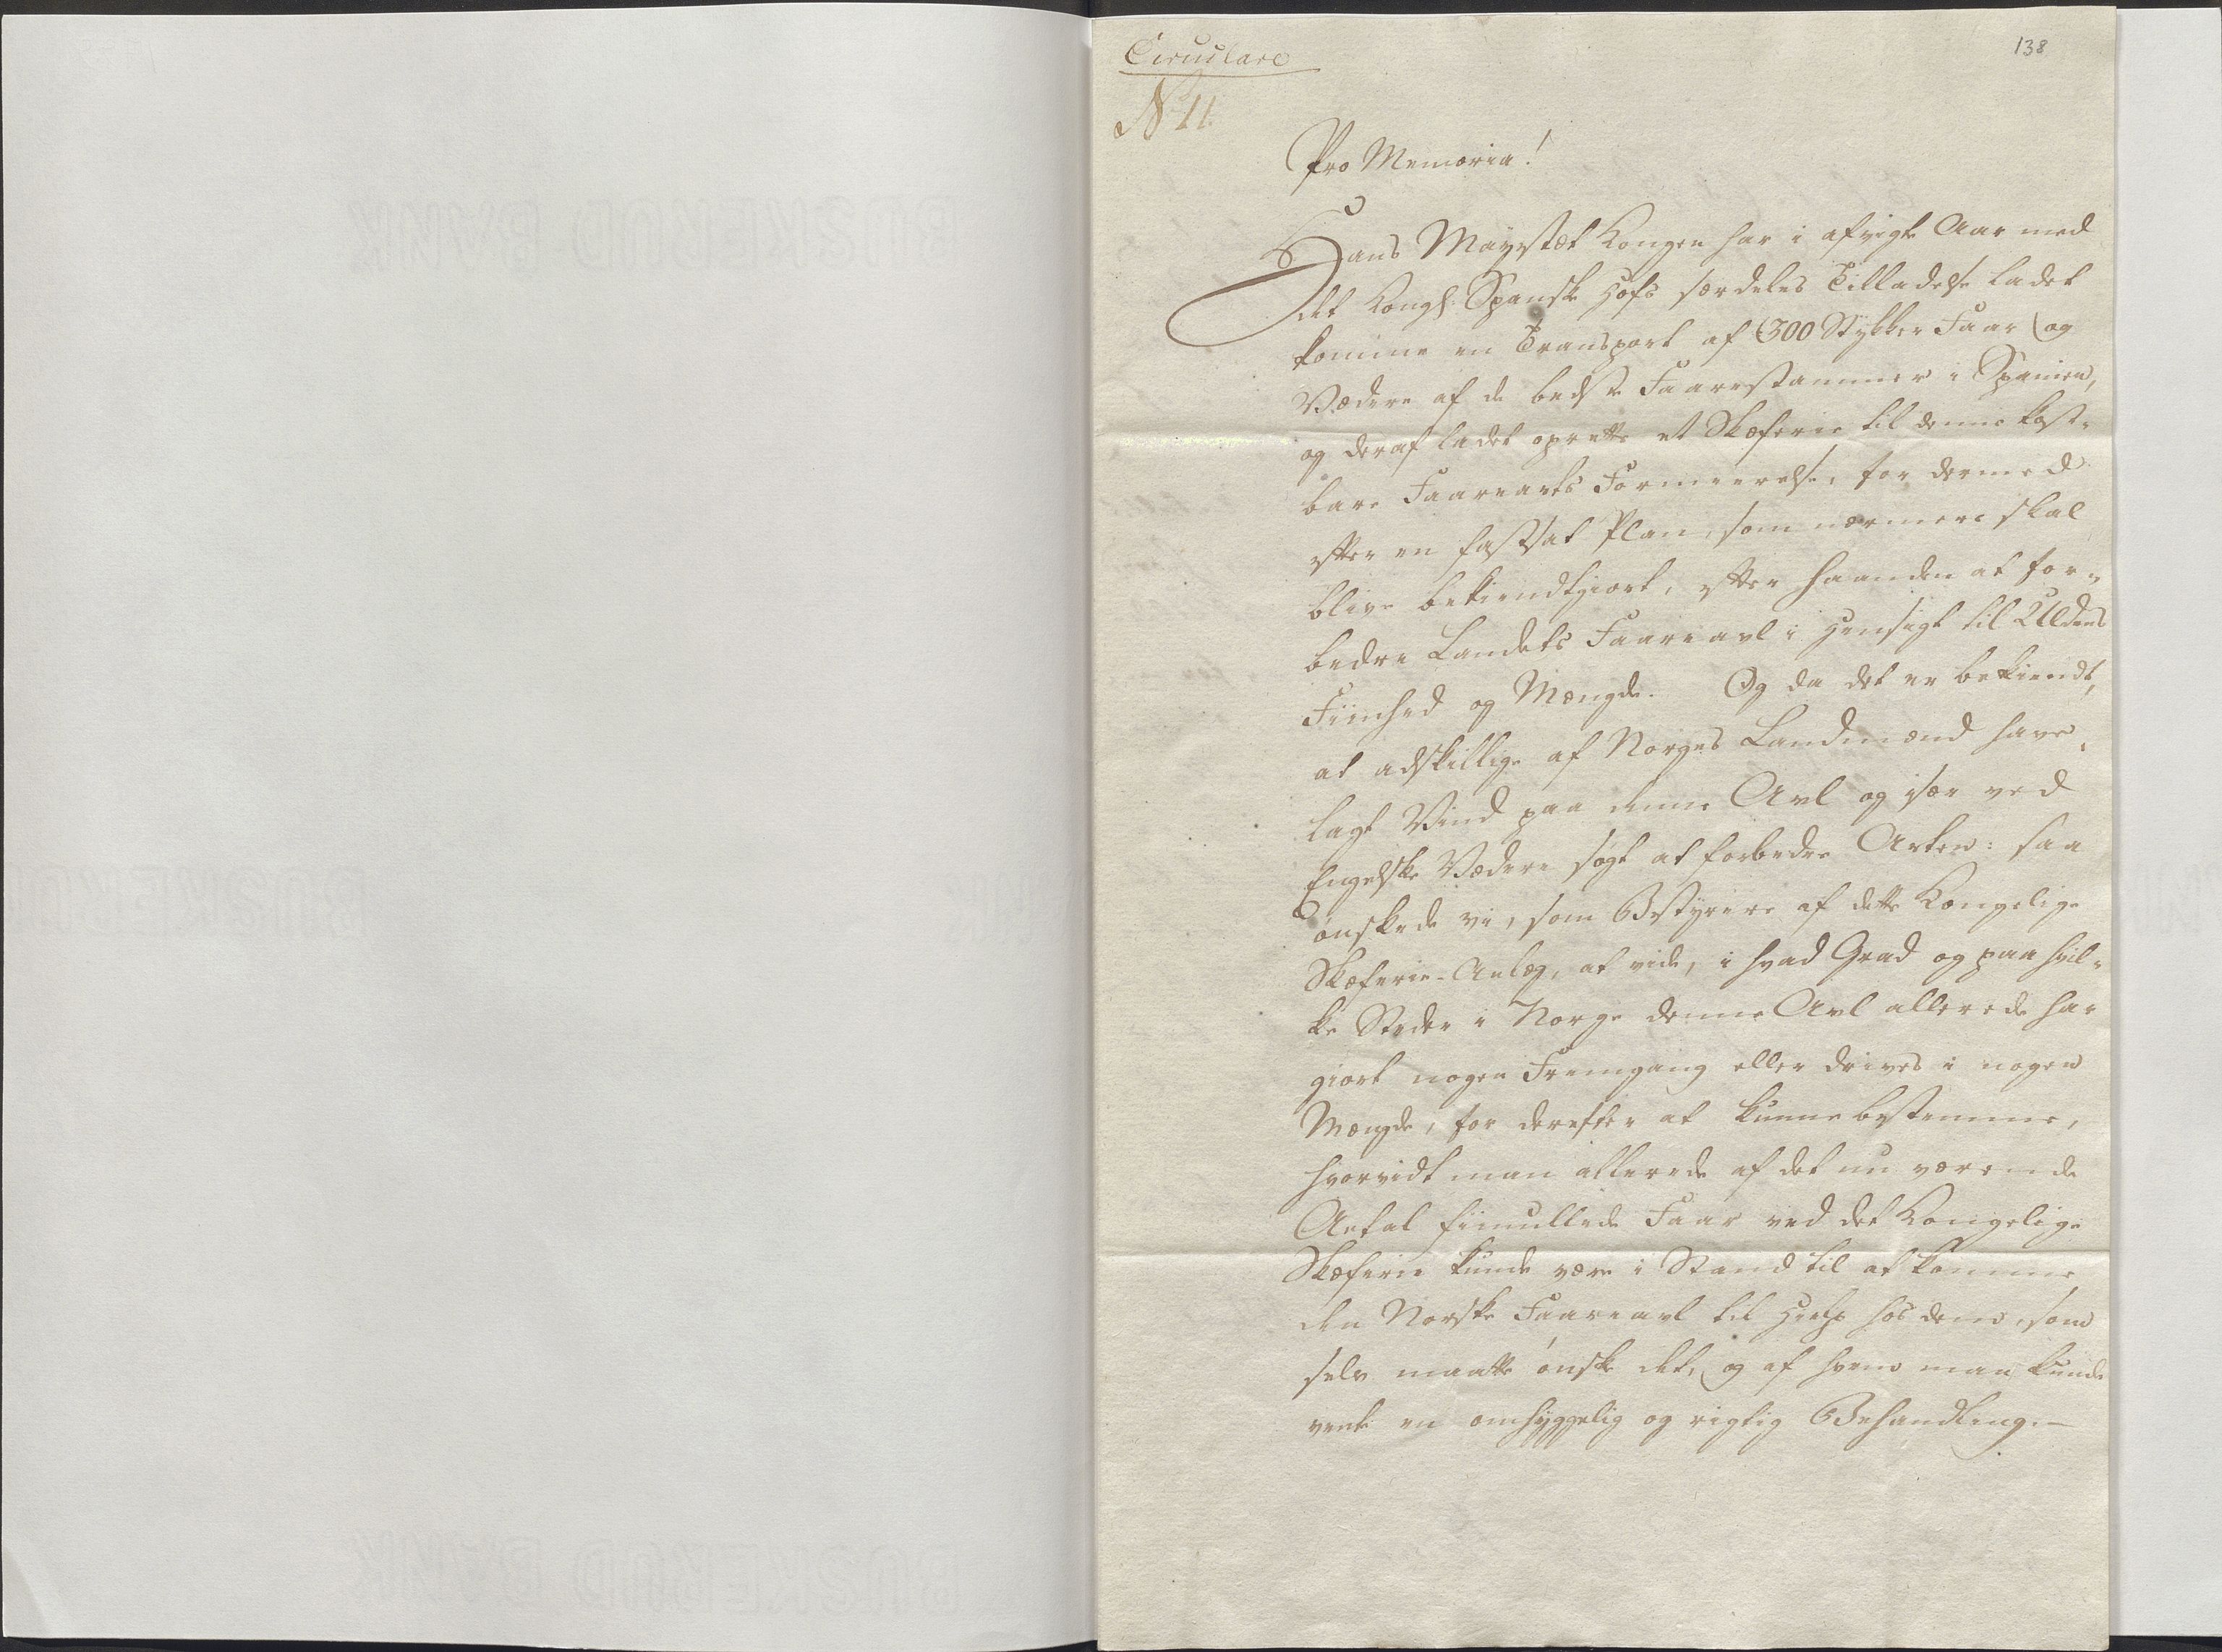 Circulare
138
N 11.
Pro Memoria!
Hans Mayestæt Kongen har i afvigte Aar med
det Kongl: Spanske Hofs særdeles Tilladelse ladet
komme en Transport af 300 Stykker Faar og
Vædere af de bedste Faarestammer i Spanien,
og deraf ladet oprette et Skæferie til denne kost-
bare Faarearts Formeerelse, for dermed
efter en fastsat Plan, som nærmere skal
blive bekiendtgiort, efter haanden at for-
bedre Landets Faareavl i Hensigt til Uldens
Fiinhed og Mængde. Og da det er bekiendt,
at adskillige af Norges Landmænd have
lagt Vind paa denne Avl og især ved
Engelske Vædere søgt at forbedre Arten: saa
ønskede vi, som Bestyrere af dette Kongelige
Skæferie-Anlæg, at vide, i hvad Grad og paa hvil-
ke Steder i Norge denne Avl allerede har
giort nogen Fremgang eller drives i nogen
Mængde, for derefter at kunne bestemme,
hvorvidt man allerede af det nu værende
Antal fiinullede Faar ved det Kongelige
Skæferie kunde være i Stand til at komme
den Norske Faareavl til Hielp hos dem, som
selv maatte ønske det, og af hvem man kunde
vente en omhyggelig og rigtig Behandling.-
BUSKERUD BANK